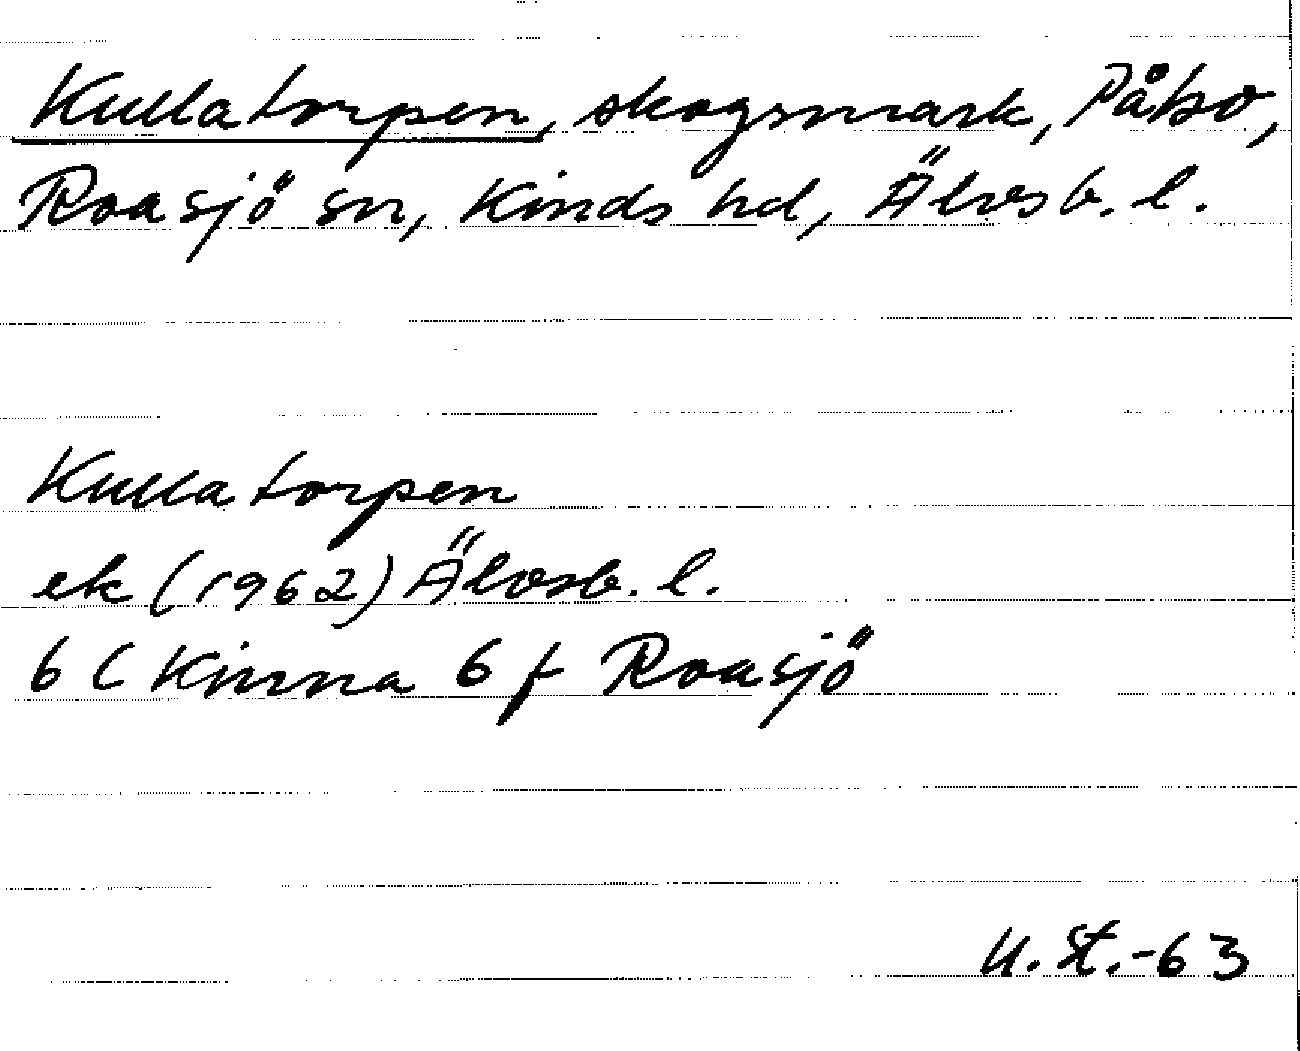 Kullatorpen, skogsmark, Påbo,
Roasjö sn, Kinds hd, Älvsb. l.
Kullatorpen
ek (1962) Älvsb. l.
6 C Kinna 6 f Roasjö
U. St.-63